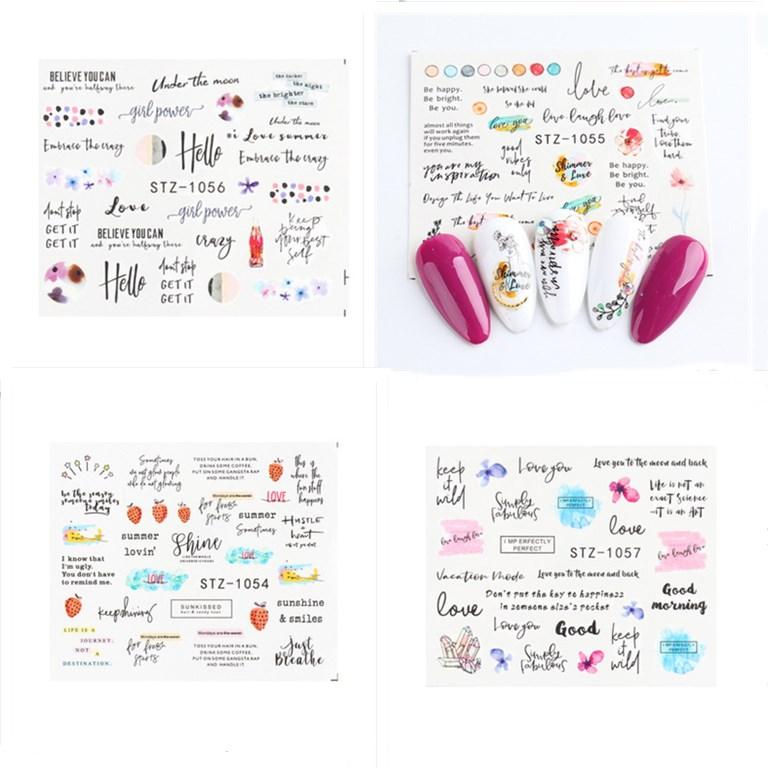 BELIEVE YOU CAN
and you're halfway there
Under the moon
the darker
the night
the brighter
the stars
girl power
Under the moon
Embrace the crazy
Hello
I Love summer
Embrace the crazy
STZ-1056
don't stop
GET IT
GET IT
Love
girl power
BELIEVE YOU CAN
and you're halfway there
crazy
Keep
being
your best
self
Hello
don't stop
GET IT
GET IT
Be happy.
Be bright.
Be you.
She believed she could
So she did
love
The best is yet to come
love
almost all things
will work again
if you unplug them
for five minutes.
even you.
love you
love laugh love
STZ-1055
Find your
tribe.
Love them
hard.
you are my
inspiration
good
vibes
only
Shimmer
& Luxe
Be happy.
Be bright.
Be you.
Design The Life You Want To Live
The best
Shimmer
& Luxe
Sometimes
TOSS YOUR HAIR IN A BUN,
DRINK SOME COFFEE,
PUT ON SOME GANGSTA RAP
AND HANDLE IT.
this is
where the
fun stuff
happens
be the reason
someone smiles
today
Mondays are the worst
for fruits
starts
LOVE
summer
Sometimes
HUSTLE
heart
summer
lovin'
Shine
I know that
I'm ugly.
You don't have
to remind me.
LOVE
LOVE
STZ-1054
keep shining
SUNKISSED
sunshine
& smiles
LIFE IS A
JOURNEY.
NOT A
DESTINATION.
Mondays are the worst
for fruits
starts
Mondays are the worst
TOSS YOUR HAIR IN A BUN,
DRINK SOME COFFEE,
PUT ON SOME GANGSTA RAP
AND HANDLE IT.
Just
Breathe
keep
it
wild
Love you
Love you to the moon and back
Simply
fabulous
I MPERFECTLY
PERFECT
Life is not an
exact Science
-it is an Art
love laugh love
I MP ERFECTLY
PERFECT
love
STZ-1057
love laugh love
Vacation Mode
Love you to the moon and back
love
Don't put the key to happiness
in someone else's pocket
Good
morning
Love you
Good
keep
it
wild
Simply
fabulous
I MPERFECTLY
PERFECT